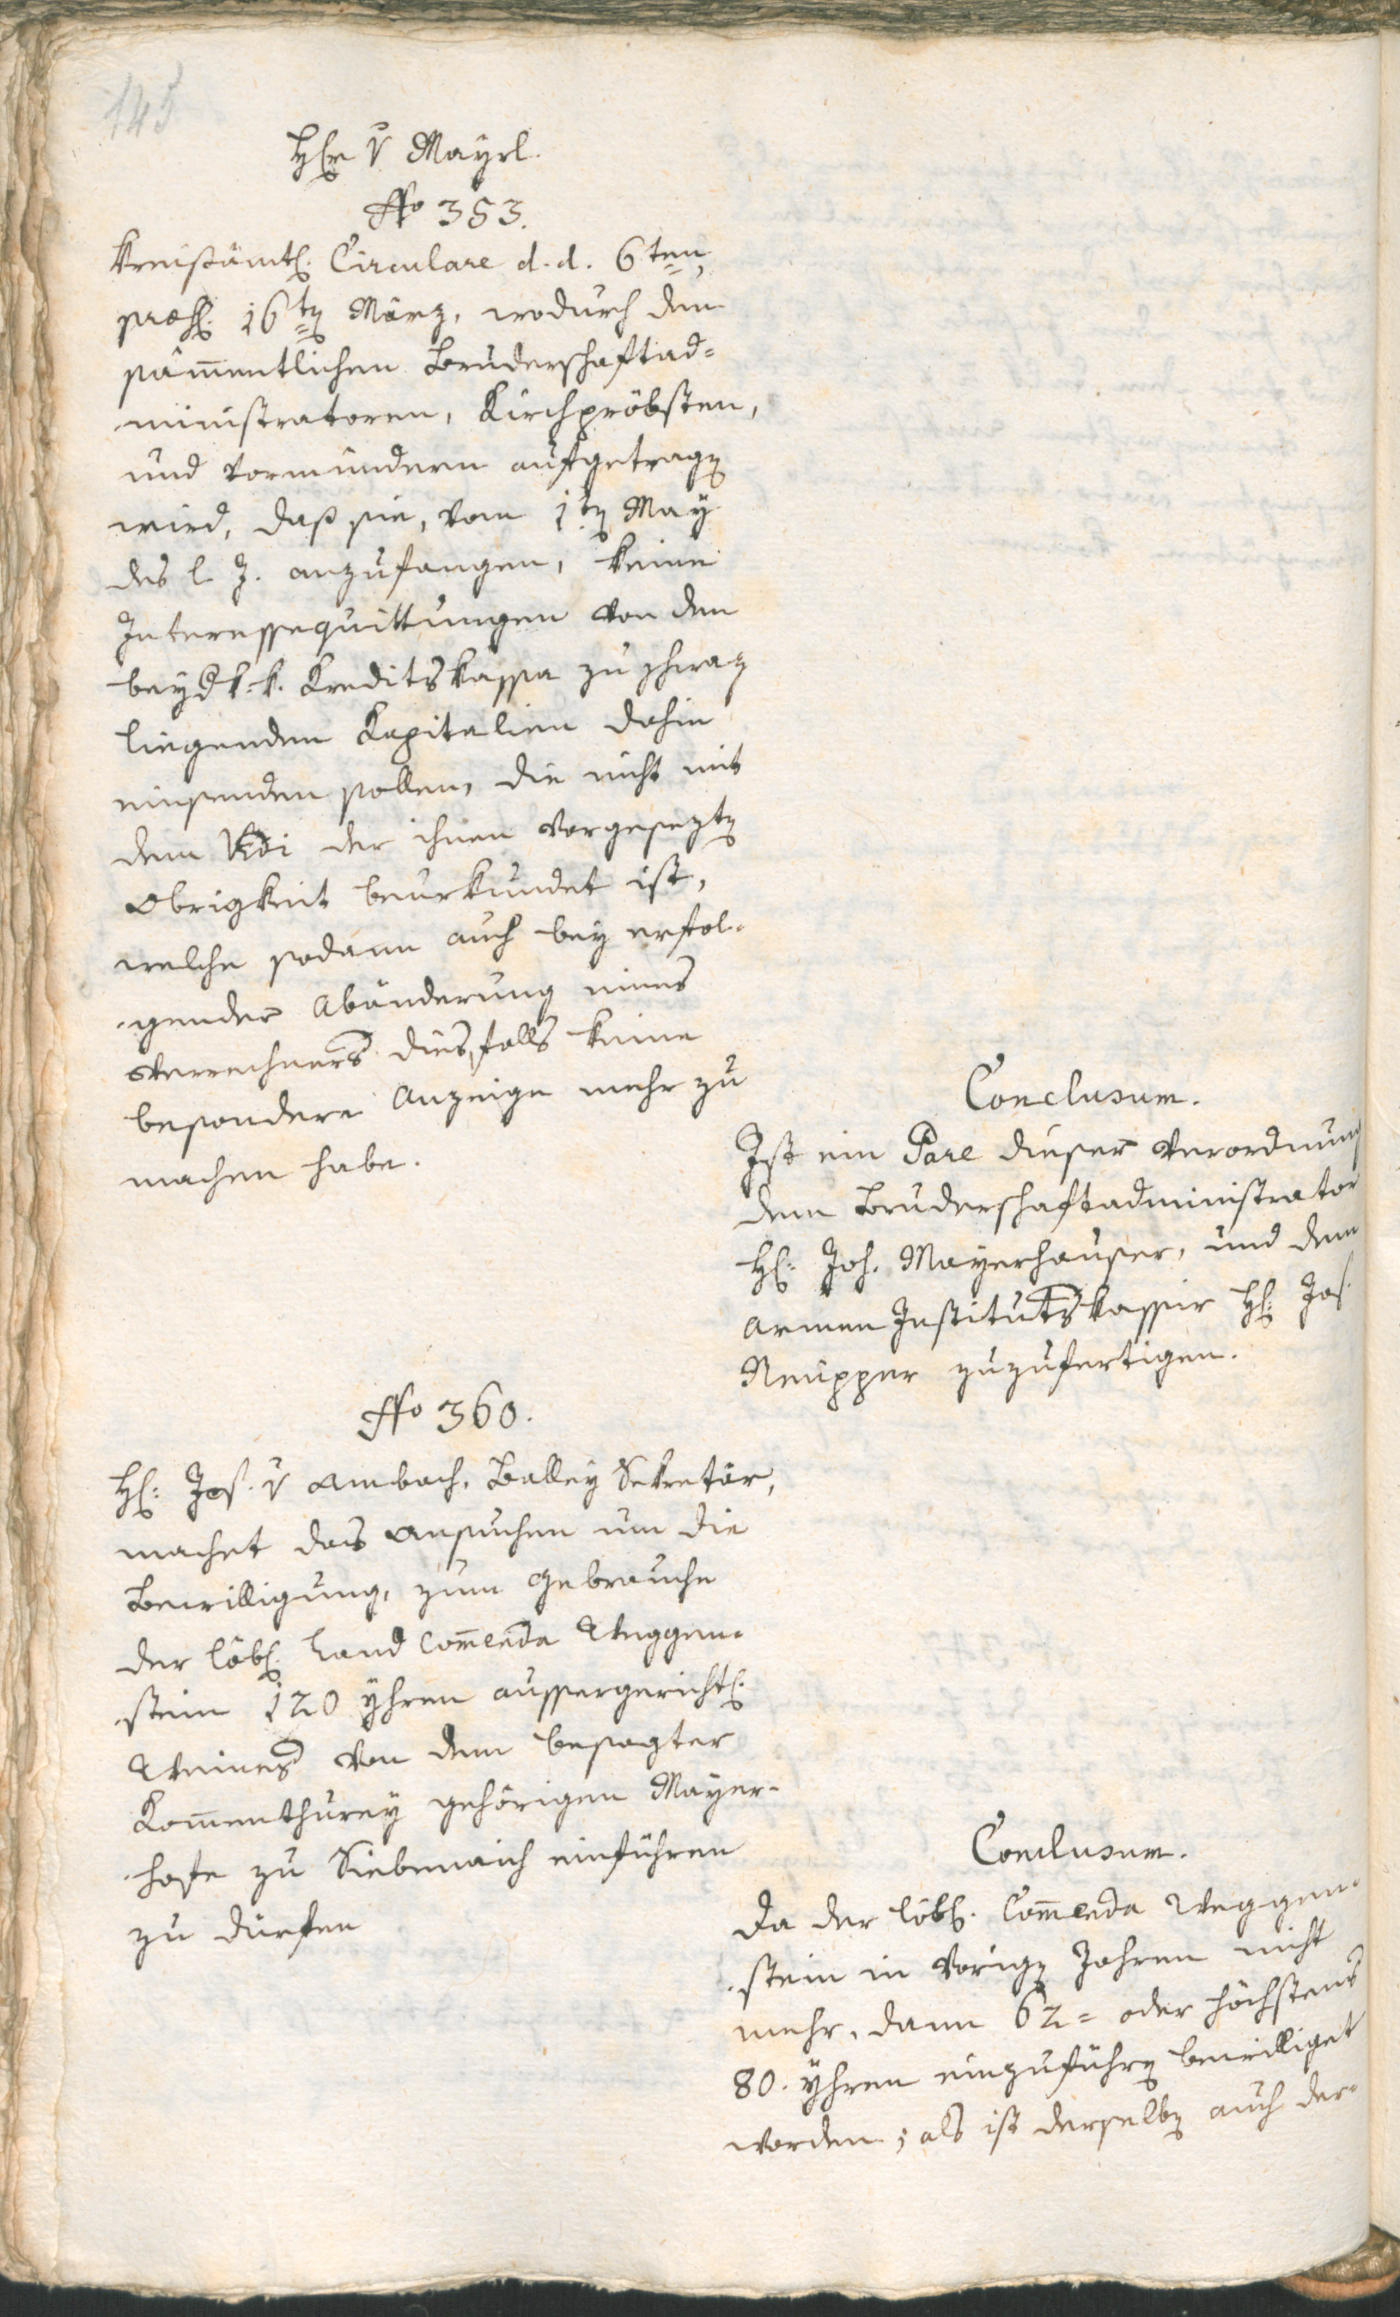 145
H(er)r v Mayrl.
No 353.
Kreisämtl. Circulare d. d. 6ten,
præs. 16ten März, wodurch den
sämmentlichen Bruderschaftad=
ministratoren, Kirchpröbsten,
und Vormündern aufgetragen
wird, daß sie, vom 1ten May
des l. J. anzufangen, keine
Interessequittungen von den
bey d k. k. Kreditskassa zu Schwaz
liegenden Kapitalien dahin
einsenden sollen, die nicht mit
dem Vidi der ihnen vorgesezten
Obrigkeit beurkundet ist,
welche sodann auch bey erfol=
gender Abänderung eines
Verrechners diesfalls keine
besondere Anzeige mehr zu
machen habe.
Conclusum.
Ist ein Pare dieser Verordnung
dem Bruderschaftadministrator
H: Joh. Mayerhauser, und dem
Armen Institutskassir H: Jos.
Neupper zuzufertigen.
No 360.
H: Jos. v Ambach, Balley Sekretär,
machet das Ansuchen um die
Bewilligung, zum Gebrauche
der löbl. Land Commenda Weggen=
stein 120 Yhren aussergerichtl.
Weines von dem besagter
Kommenthurey gehörigen Mayer=
hofe zu Siebenaich einführen
zu dürfen
Conclusum.
Da der löbl. Commenda Weggen=
stein in vorigen Jahren nicht
mehr, dann 62= oder höchstens
80. Yhren einzuführen bewilliget
worden; als ist derselben auch der=